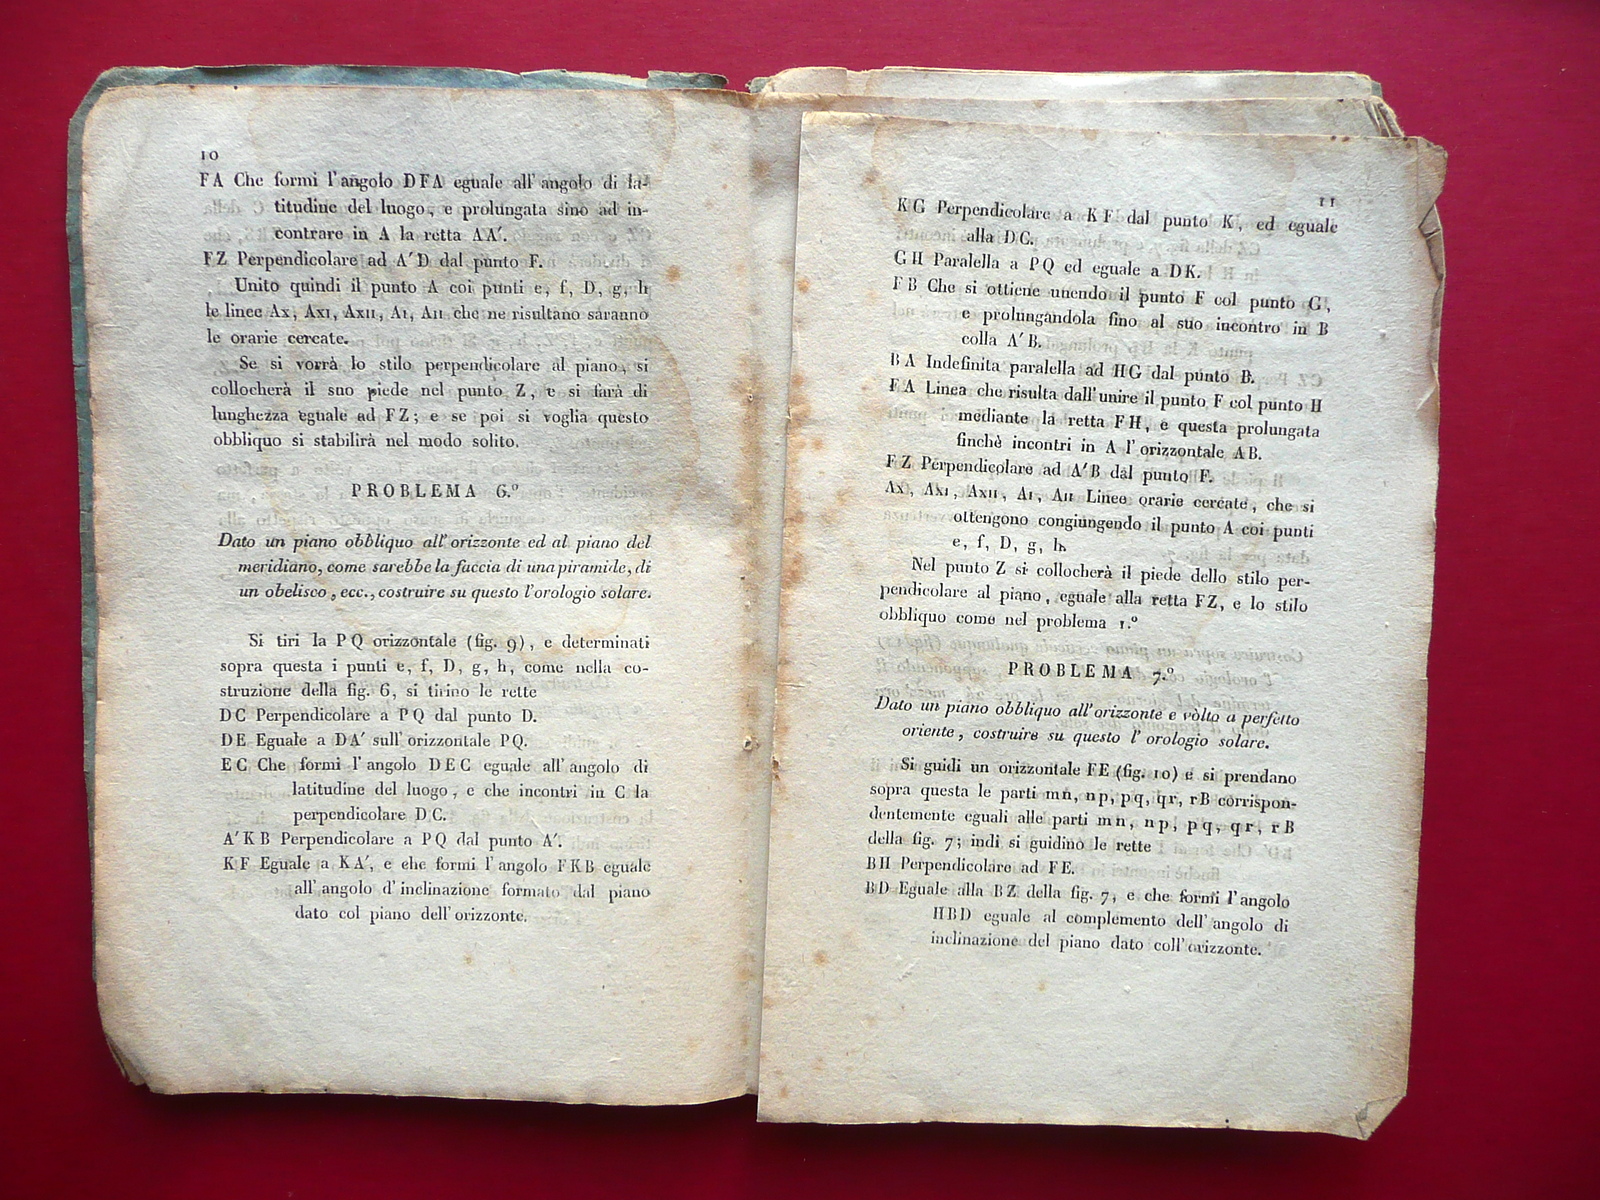 10
FA Che formi l'angolo DFA eguale all'angolo di la-
titudine del luogo, e prolungata sino ad in-
contrare in A la retta AA'.
FZ Perpendicolare ad A'D dal punto F.
Unito quindi il punto A coi punti e, f, D, g, h
le linee Ax, Axi, Axii, Ai, Aii che ne risultano saranno
le orarie cercate.
Se si vorrà lo stilo perpendicolare al piano, si
collocherà il sno piede nel punto Z, e si farà di
lunghezza eguale ad FZ; e se poi si voglia questo
obbliquo si stabilirà nel modo solito.
PROBLEMA 6.º
Dato un piano obbliquo all'orizzonte ed al piano del
meridiano, come sarebbe la faccia di una piramide, di
un obelisco, ecc., costruire su questo l'orologio solare.
Si tiri la PQ orizzontale (fig. 9), e determinati
sopra questa i punti e, f, D, g, h, come nella co-
struzione della fig. 6, si tirino le rette
DC Perpendicolare a PQ dal punto D.
DE Eguale a DA' sull'orizzontale PQ.
EC Che formi l'angolo DEC eguale all'angolo di
latitudine del luogo, e che incontri in C la
perpendicolare DC.
A'KB Perpendicolare a PQ dal punto A'.
KF Eguale a KA', e che formi l'angolo FKB eguale
all'angolo d'inclinazione formato dal piano
dato col piano dell'orizzonte.
11
KG Perpendicolare a KF dal punto K, ed eguale
alla DC.
GH Paralella a PQ ed eguale a DK.
FB Che si ottiene unendo il punto F col punto G,
e prolungandola fino al suo incontro in B
colla A'B.
BA Indefinita paralella ad HG dal punto B.
FA Linea che risulta dall'unire il punto F col punto H
mediante la retta FH, e questa prolungata
finchè incontri in A l'orizzontale AB.
FZ Perpendicolare ad A'B dal punto F.
Ax, Axi, Axii, Ai, Aii Linee orarie cercate, che si
ottengono congiungendo il punto A coi punti
e, f, D, g, h.
Nel punto Z si collocherà il piede dello stilo per-
pendicolare al piano, eguale alla retta FZ, e lo stilo
obbliquo come nel problema 1.º
PROBLEMA 7.º
Dato un piano obbliquo all'orizzonte e vòlto a perfetto
oriente, costruire su questo l'orologio solare.
Si guidi un orizzontale FE (fig. 10) e si prendano
sopra questa le parti mn, np, pq, qr, rB corrispon-
dentemente eguali alle parti mn, np, pq, qr, rB
della fig. 7; indi si guidino le rette
BH Perpendicolare ad FE.
BD Eguale alla BZ della fig. 7, e che formi l'angolo
HBD eguale al complemento dell'angolo di
inclinazione del piano dato coll'orizzonte.